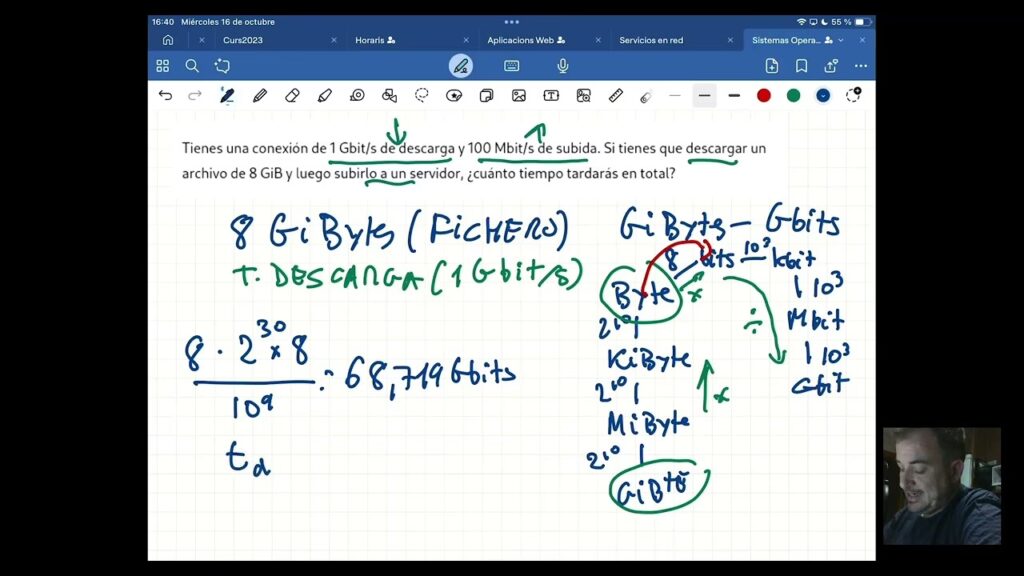 16:40 Miércoles 16 de octubre
55 %
Curs2023
Horaris
Aplicacions Web
Servicios en red
Sistemas Opera...
Tienes una conexión de 1 Gbit/s de descarga y 100 Mbit/s de subida. Si tienes que descargar un
archivo de 8 GiB y luego subirlo a un servidor, ¿cuánto tiempo tardarás en total?
8 GiBytes (FICHERO)
T. DESCARGA (1 Gbit/s)
8 · 2^30 × 8
10^9
= 68,719 Gbits
t_d
GiBytes — Gbits
8 bits 10^3 kbit
Byte × 10^3
2^10 ÷ Mbit
KiByte 10^3
2^10 × Gbit
MiByte
2^10
GiByte